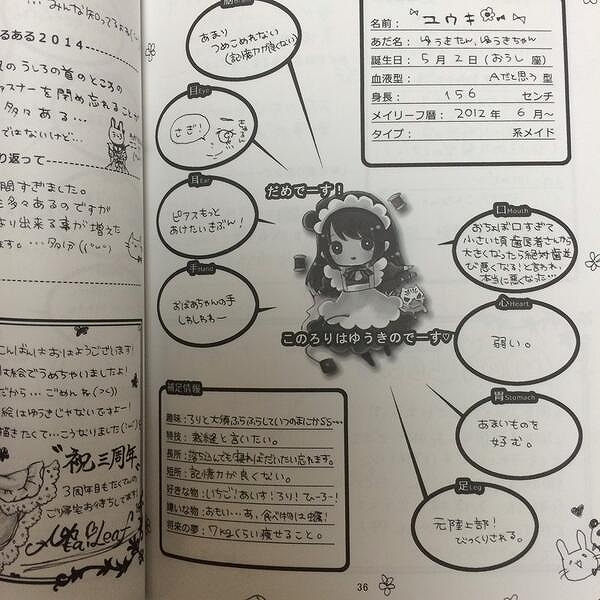 るある２０１４
のうしろの首のところの
ァスナーを閉め忘れることが
多々ある…
ではないけど…
り返って
開すぎました。
多々あるのですが
より出来る事が増えた
ます。…多分
こんばんはおはようございます！
絵でうめちゃいましたよ！
だから…ごめんね
絵はゆうきじゃないですよー！
描きたくて…こうなりました
祝三周年
３周年もたくさんの
ご帰宅お待ちしてます！
脳Brain
あまり
つめこめれない
（記憶力が良くない）
目Eye
さぎ！
きゅるん
耳Ear
ピアスもっと
あけたいきぶん！
手Hand
おばあちゃんの手
しわしわー
名前：ユウキ
あだ名：ゆうきたん、ゆうきちゃん
誕生日：５月２日（おうし座）
血液型：Aだと思う型
身長：156センチ
メイリーフ暦：2012年６月～
タイプ：系メイド
だめでーす！
このろりはゆうきのでーす♡
口Mouth
おちょぼ口すぎて
小さい頃歯医者さんから
大きくなったら絶対歯並
び悪くなる！と言われ、
本当に悪くなった…
心Heart
弱い。
胃Stomach
あまいものを
好む。
足Leg
元陸上部！
びっくりされる。
補足情報
趣味：ろりと大須ふらふらしていつのまにかSS…
特技：裁縫と言いたい。
長所：落ち込んでも寝ればだいたい忘れます。
短所：記憶力が良くない。
好きな物：いちご！あいす！ろり！ひーろー！
嫌いな物：おもい…あ、食べ物は虫！
将来の夢：７kgくらい痩せること。
36